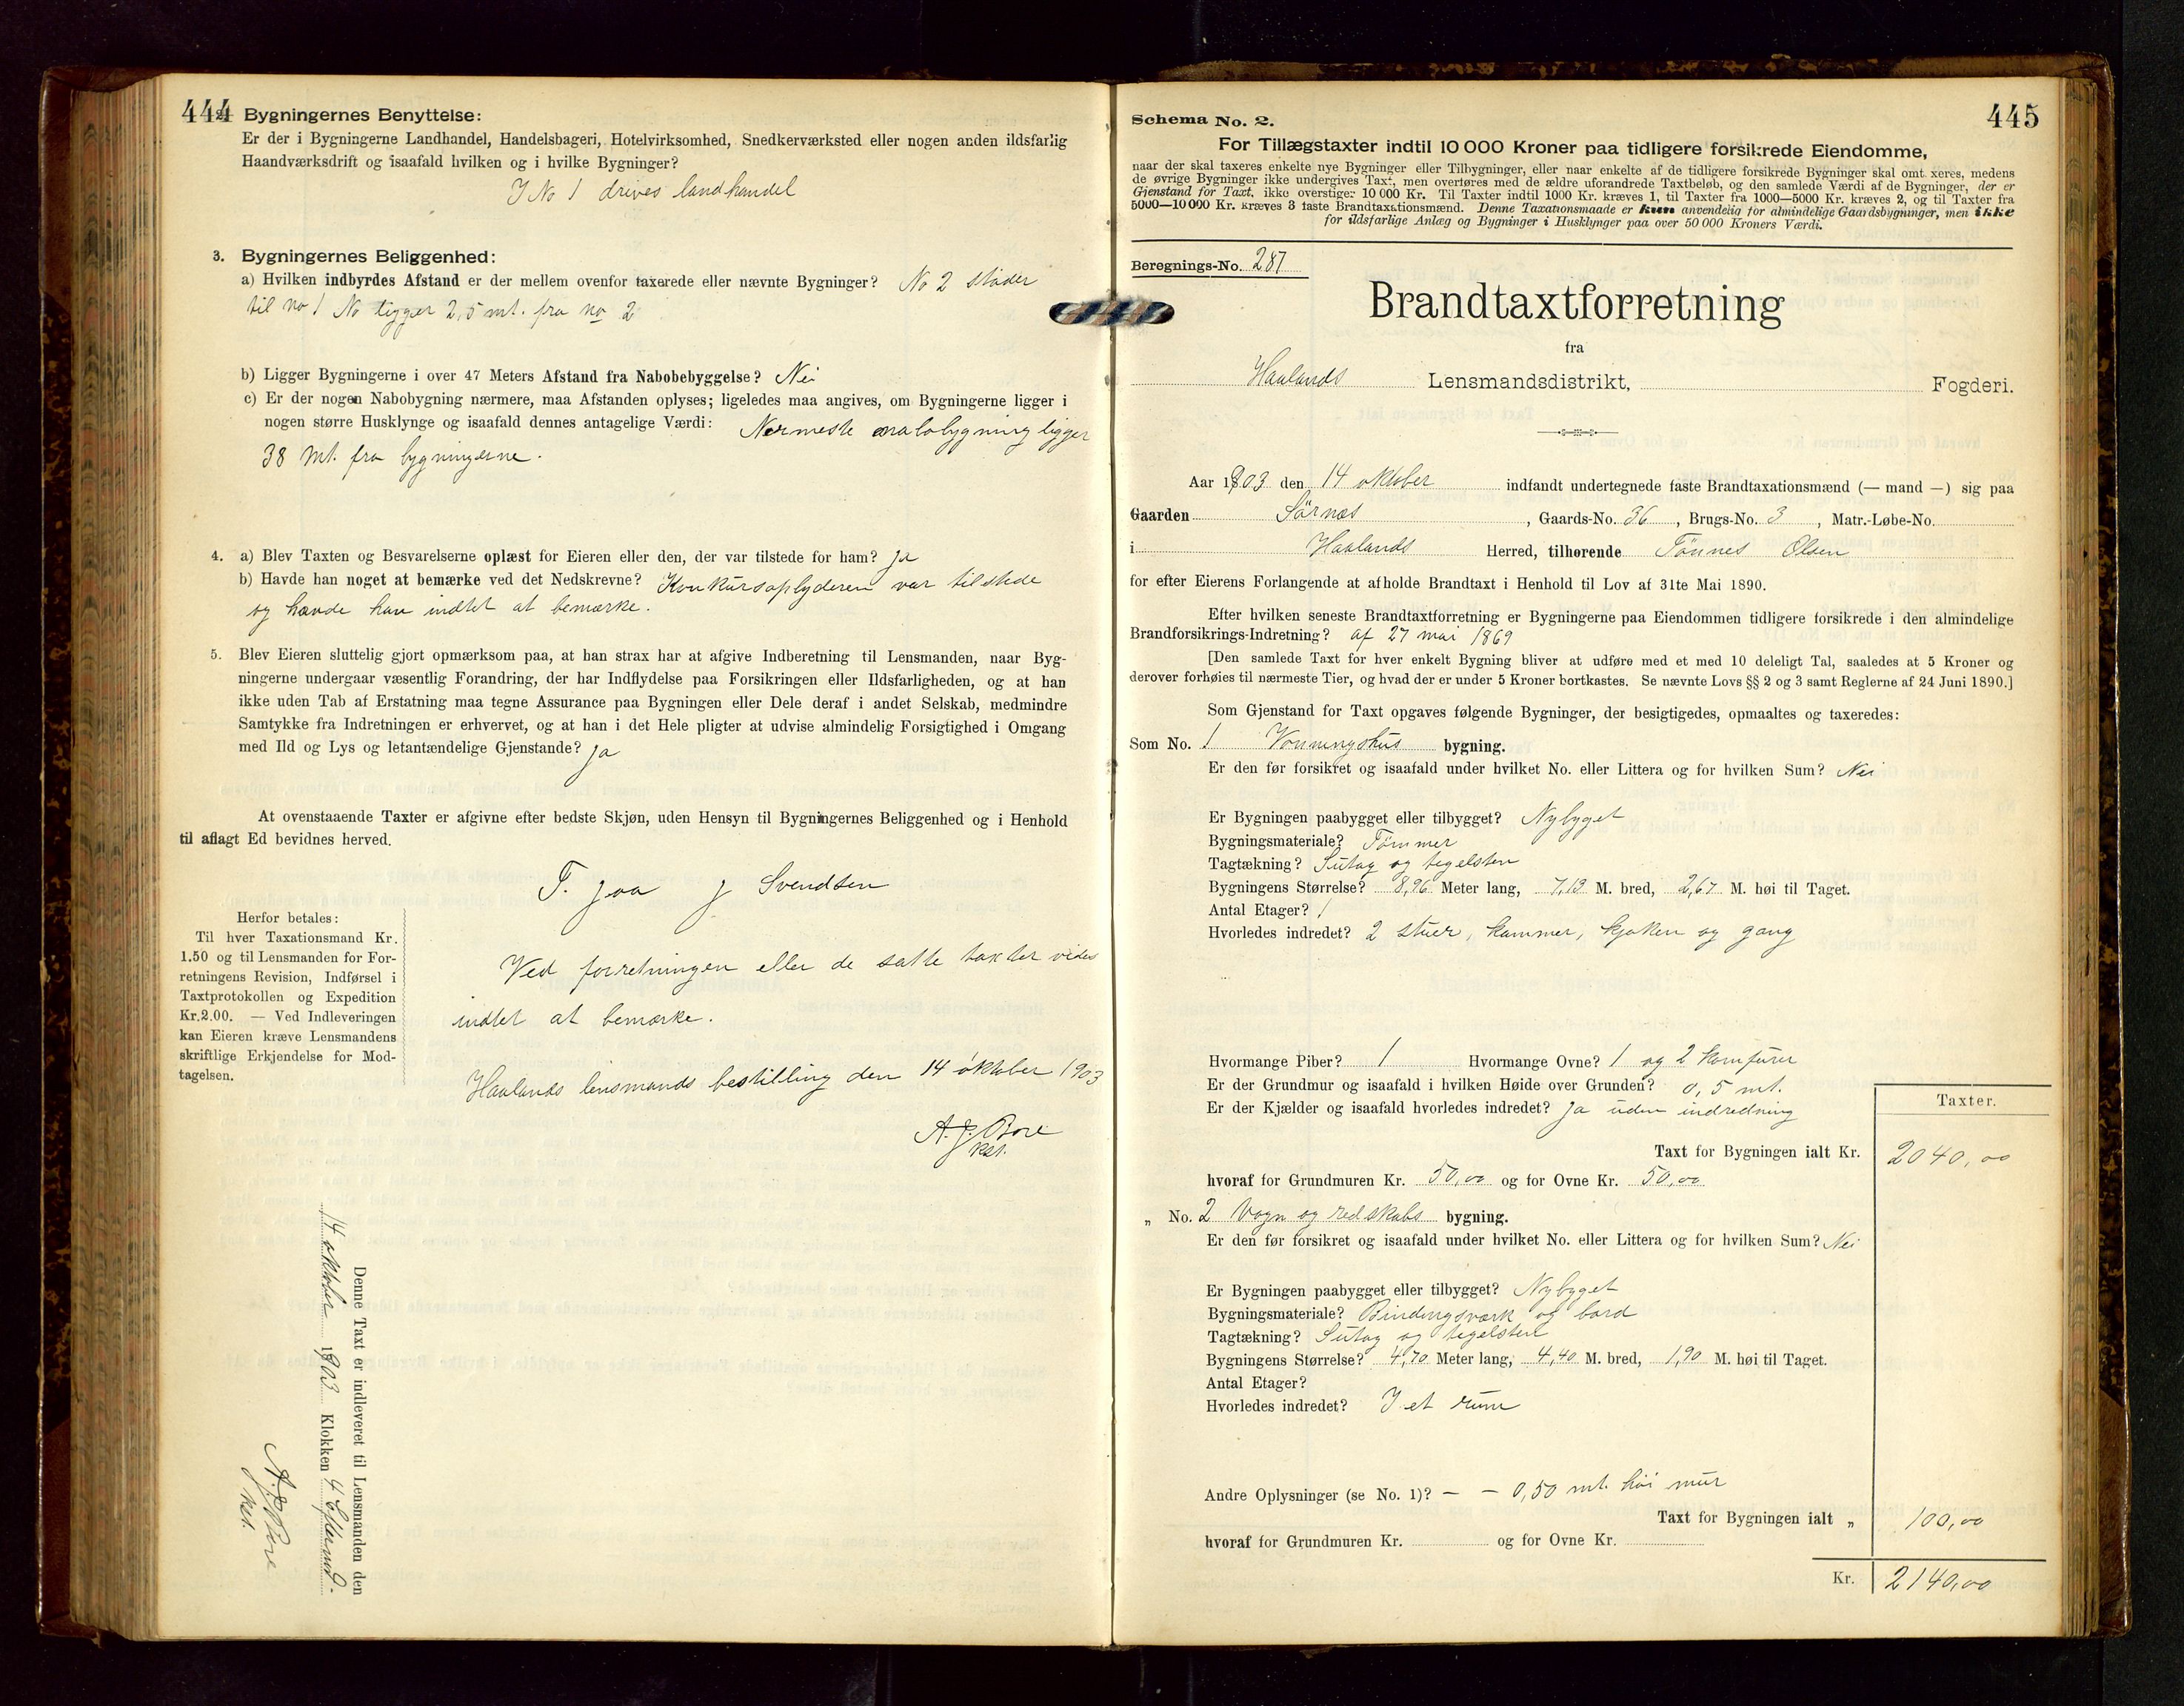 444
2. Bygningernes Benyttelse:
Er der i Bygningerne Landhandel, Handelsbageri, Hotelvirksomhed, Snedkerværksted eller nogen anden ildsfarlig
Haandværksdrift og isaafald hvilken og i hvilke Bygninger?
I No 1 drives landhandel
3. Bygningernes Beliggenhed:
a) Hvilken indbyrdes Afstand er der mellem ovenfor taxerede eller nævnte Bygninger? No 2 støder
til no 1 No ligger 2,5 mt. fra no 2
b) Ligger Bygningerne i over 47 Meters Afstand fra Nabobebyggelse? Nei
c) Er der nogen Nabobygning nærmere, maa Afstanden oplyses; ligeledes maa angives, om Bygningerne ligger i
nogen større Husklynge og isaafald dennes antagelige Værdi: Nermeste nabobygning ligger
38 Mt. fra bygningerne.
4. a) Blev Taxten og Besvarelserne oplæst for Eieren eller den, der var tilstede for ham? Ja
b) Havde han noget at bemærke ved det Nedskrevne? Konkursoplyderen var tilstede
og havde han indtet at bemærke.
5. Blev Eieren sluttelig gjort opmærksom paa, at han strax har at afgive Indberetning til Lensmanden, naar Byg-
ningerne undergaar væsentlig Forandring, der har Indflydelse paa Forsikringen eller Ildsfarligheden, og at han
ikke uden Tab af Erstatning maa tegne Assurance paa Bygningen eller Dele deraf i andet Selskab, medmindre
Samtykke fra Indretningen er erhvervet, og at han i det Hele pligter at udvise almindelig Forsigtighed i Omgang
med Ild og Lys og letantændelige Gjenstande? Ja
At ovenstaaende Taxter er afgivne efter bedste Skjøn, uden Hensyn til Bygningernes Beliggenhed og i Henhold
til aflagt Ed bevidnes herved.
T. Joa J Svendsen
Herfor betales:
Til hver Taxationsmand Kr.
1.50 og til Lensmanden for For-
retningens Revision, Indførsel i
Taxtprotokollen og Expedition
Kr.2.00. — Ved Indleveringen
kan Eieren kræve Lensmandens
skriftlige Erkjendelse for Mod-
tagelsen.
Ved forretningen eller de satte takster vides
indtet at bemærke.
Haalands lensmands bestilling den 14 oktober 1903
A. J. Bore
kst.
Denne Taxt er indleveret til Lensmanden den
14 oktober 1903 Klokken 4 Eftermd.
A. J. Bore
kst.
445
Schema No. 2.
For Tillægstaxter indtil 10 000 Kroner paa tidligere forsikrede Eiendomme,
naar der skal taxeres enkelte nye Bygninger eller Tilbygninger, eller naar enkelte af de tidligere forsikrede Bygninger skal omt xeres, medens
de øvrige Bygninger ikke undergives Taxt, men overføres med de ældre uforandrede Taxtbeløb, og den samlede Værdi af de Bygninger, der er
Gjenstand for Taxt, ikke overstiger 10 000 Kr. Til Taxter indtil 1000 Kr. kræves 1, til Taxter fra 1000—5000 Kr. kræves 2, og til Taxter fra
5000—10 000 Kr. kræves 3 faste Brandtaxationsmænd. Denne Taxationsmaade er kun anvendelig for almindelige Gaardsbygninger, men ikke
for ildsfarlige Anlæg og Bygninger i Husklynger paa over 50 000 Kroners Værdi.
Beregnings-No. 287
Brandtaxtforretning
fra
Haalands Lensmandsdistrikt, Fogderi.
Aar 1903 den 14 oktober indfandt undertegnede faste Brandtaxationsmænd (— mand —) sig paa
Gaarden Sörnes, Gaards-No. 36, Brugs-No. 3, Matr.-Løbe-No.
i Haalands Herred, tilhørende Tönnes Olsen
for efter Eierens Forlangende at afholde Brandtaxt i Henhold til Lov af 31te Mai 1890.
Efter hvilken seneste Brandtaxtforretning er Bygningerne paa Eiendommen tidligere forsikrede i den almindelige
Brandforsikrings-Indretning? af 27 mai 1869
[Den samlede Taxt for hver enkelt Bygning bliver at udføre med et med 10 deleligt Tal, saaledes at 5 Kroner og
derover forhøies til nærmeste Tier, og hvad der er under 5 Kroner bortkastes. Se nævnte Lovs §§ 2 og 3 samt Reglerne af 24 Juni 1890.]
Som Gjenstand for Taxt opgaves følgende Bygninger, der besigtigedes, opmaaltes og taxeredes:
Som No. 1 Vonningshus bygning.
Er den før forsikret og isaafald under hvilket No. eller Littera og for hvilken Sum? Nei
Er Bygningen paabygget eller tilbygget? Nybyget
Bygningsmateriale? Tömmer
Tagtækning? Sutag og tegelsten
Bygningens Størrelse? 8,96 Meter lang, 7,13 M. bred, 2,67 M. høi til Taget.
Antal Etager? 1
Hvorledes indredet? 2 stuer, kammer, kjøken og gang
Hvormange Piber? 1 Hvormange Ovne? 1 og 2 komfurer
Er der Grundmur og isaafald i hvilken Høide over Grunden? 0,5 mt.
Er der Kjælder og isaafald hvorledes indredet? Ja uden indredning
Taxter.
Taxt for Bygningen ialt Kr. 2040,00
hvoraf for Grundmuren Kr. 50,00 og for Ovne Kr. 50,00
„ No. 2 Vogn og redskabs bygning.
Er den før forsikret og isaafald under hvilket No. eller Littera og for hvilken Sum? Nei
Er Bygningen paabygget eller tilbygget? Nybyget
Bygningsmateriale? Bindingsværk og bord
Tagtækning? Sutag og tegelsten
Bygningens Størrelse? 4,70 Meter lang, 4,40 M. bred, 1,90 M. høi til Taget.
Antal Etager?
Hvorledes indredet? I et rum
Andre Oplysninger (se No. 1)? — — 0,50 mt. høi mur
Taxt for Bygningen ialt „ 100,00
hvoraf for Grundmuren Kr. og for Ovne Kr.
Kr. 2140,00